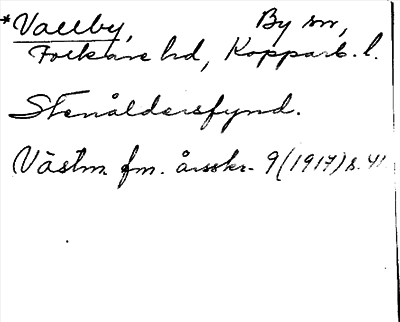 *Vallby, By sn,
Folkare hd, Kopparb. l.
Stenåldersfynd.
Västm. fm. årsskr. 9 (1917) s. 41